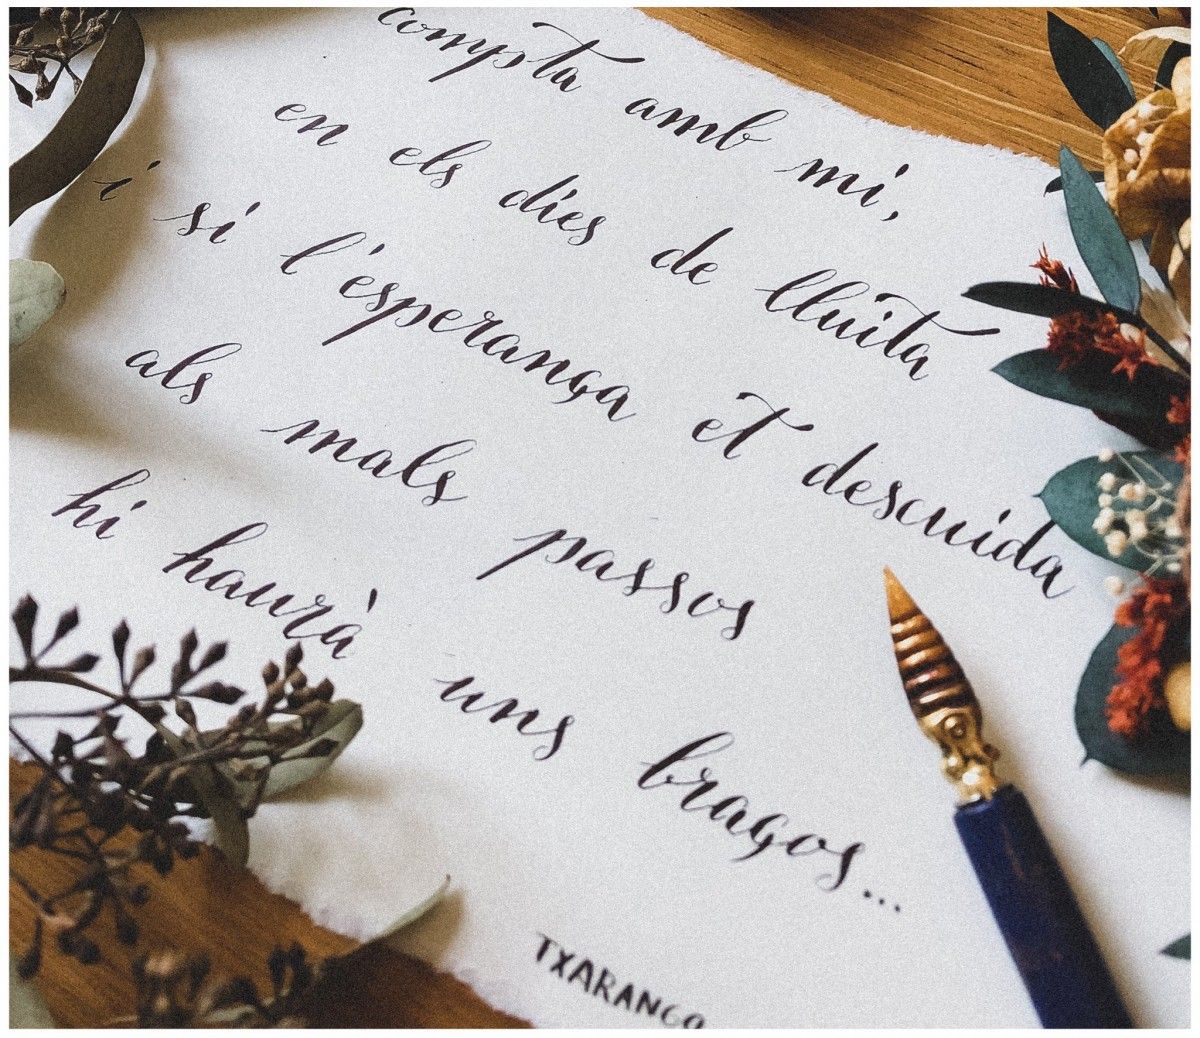 compta amb mi,
en els dies de lluita
i si l'esperança et descuida
als mals passos
hi haurà uns braços...
TXARANGO